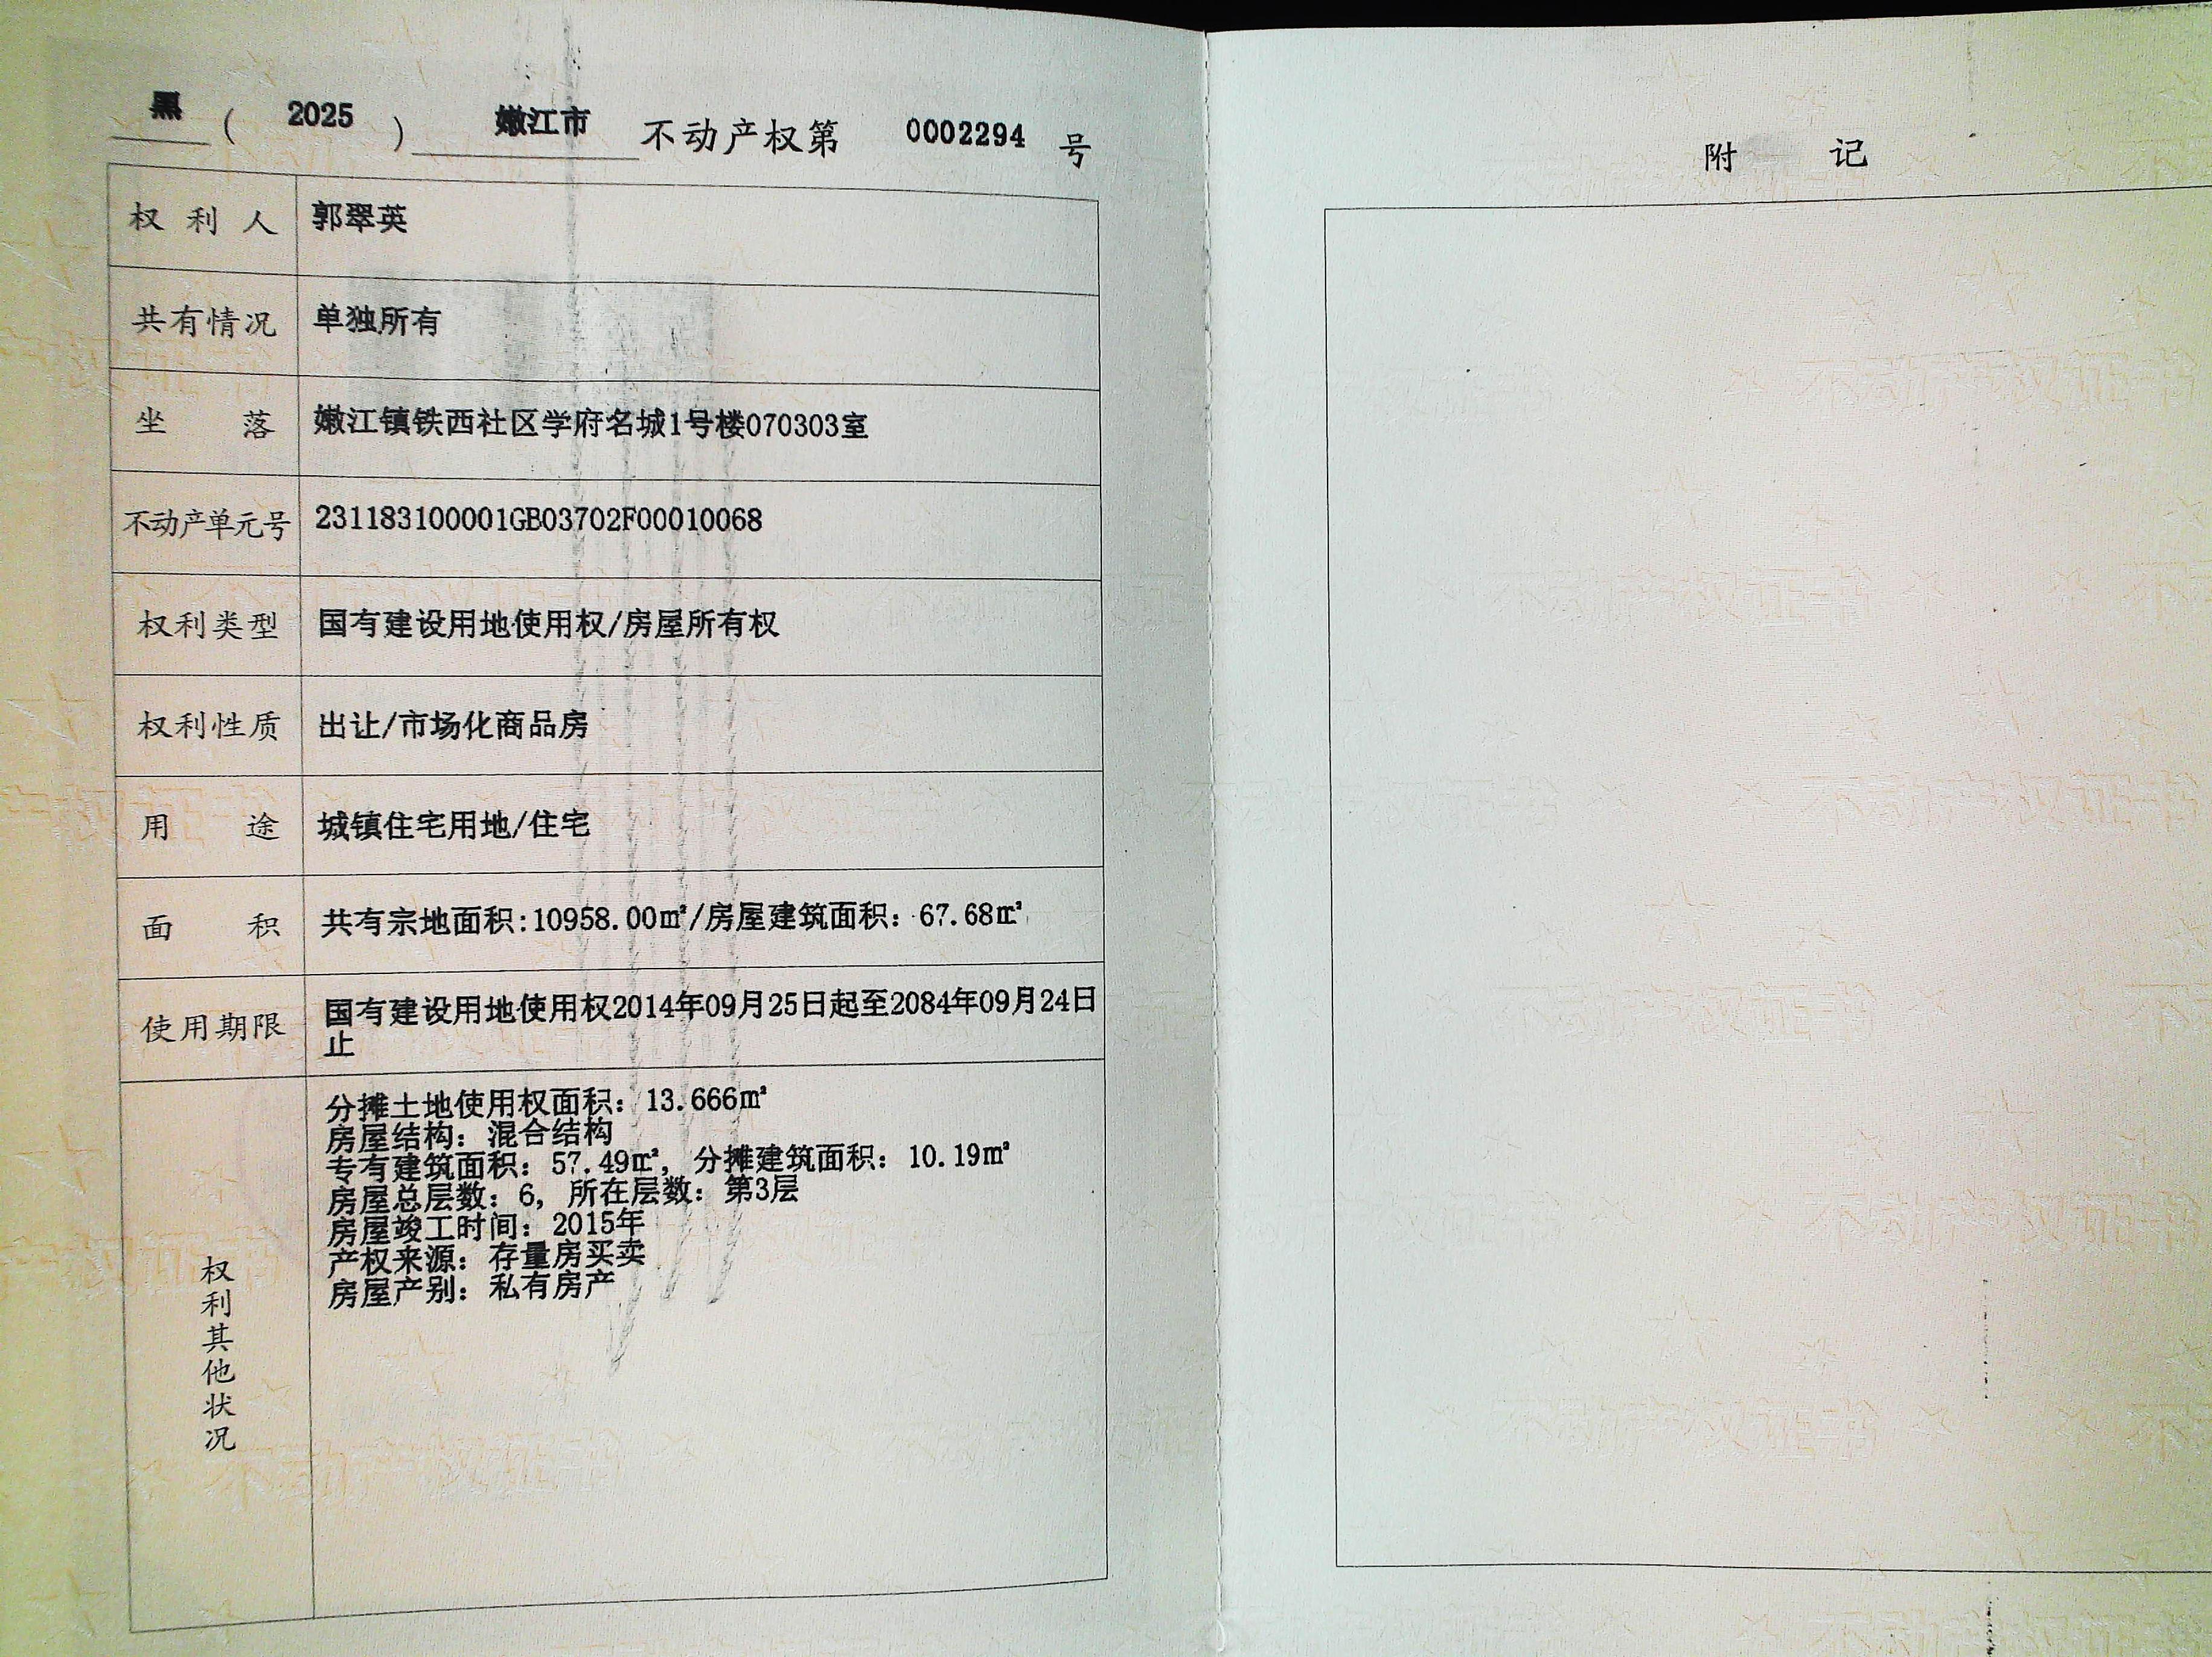 黑 ( 2025 ) 嫩江市 不动产权第 0002294 号
权利人 郭翠英
共有情况 单独所有
坐落 嫩江镇铁西社区学府名城1号楼070303室
不动产单元号 231183100001GB03702F00010068
权利类型 国有建设用地使用权/房屋所有权
权利性质 出让/市场化商品房
用途 城镇住宅用地/住宅
面积 共有宗地面积:10958.00㎡/房屋建筑面积：67.68㎡
使用期限 国有建设用地使用权2014年09月25日起至2084年09月24日
止
权利其他状况
分摊土地使用权面积：13.666㎡
房屋结构：混合结构
专有建筑面积：57.49㎡，分摊建筑面积：10.19㎡
房屋总层数：6，所在层数：第3层
房屋竣工时间：2015年
产权来源：存量房买卖
房屋产别：私有房产
附记